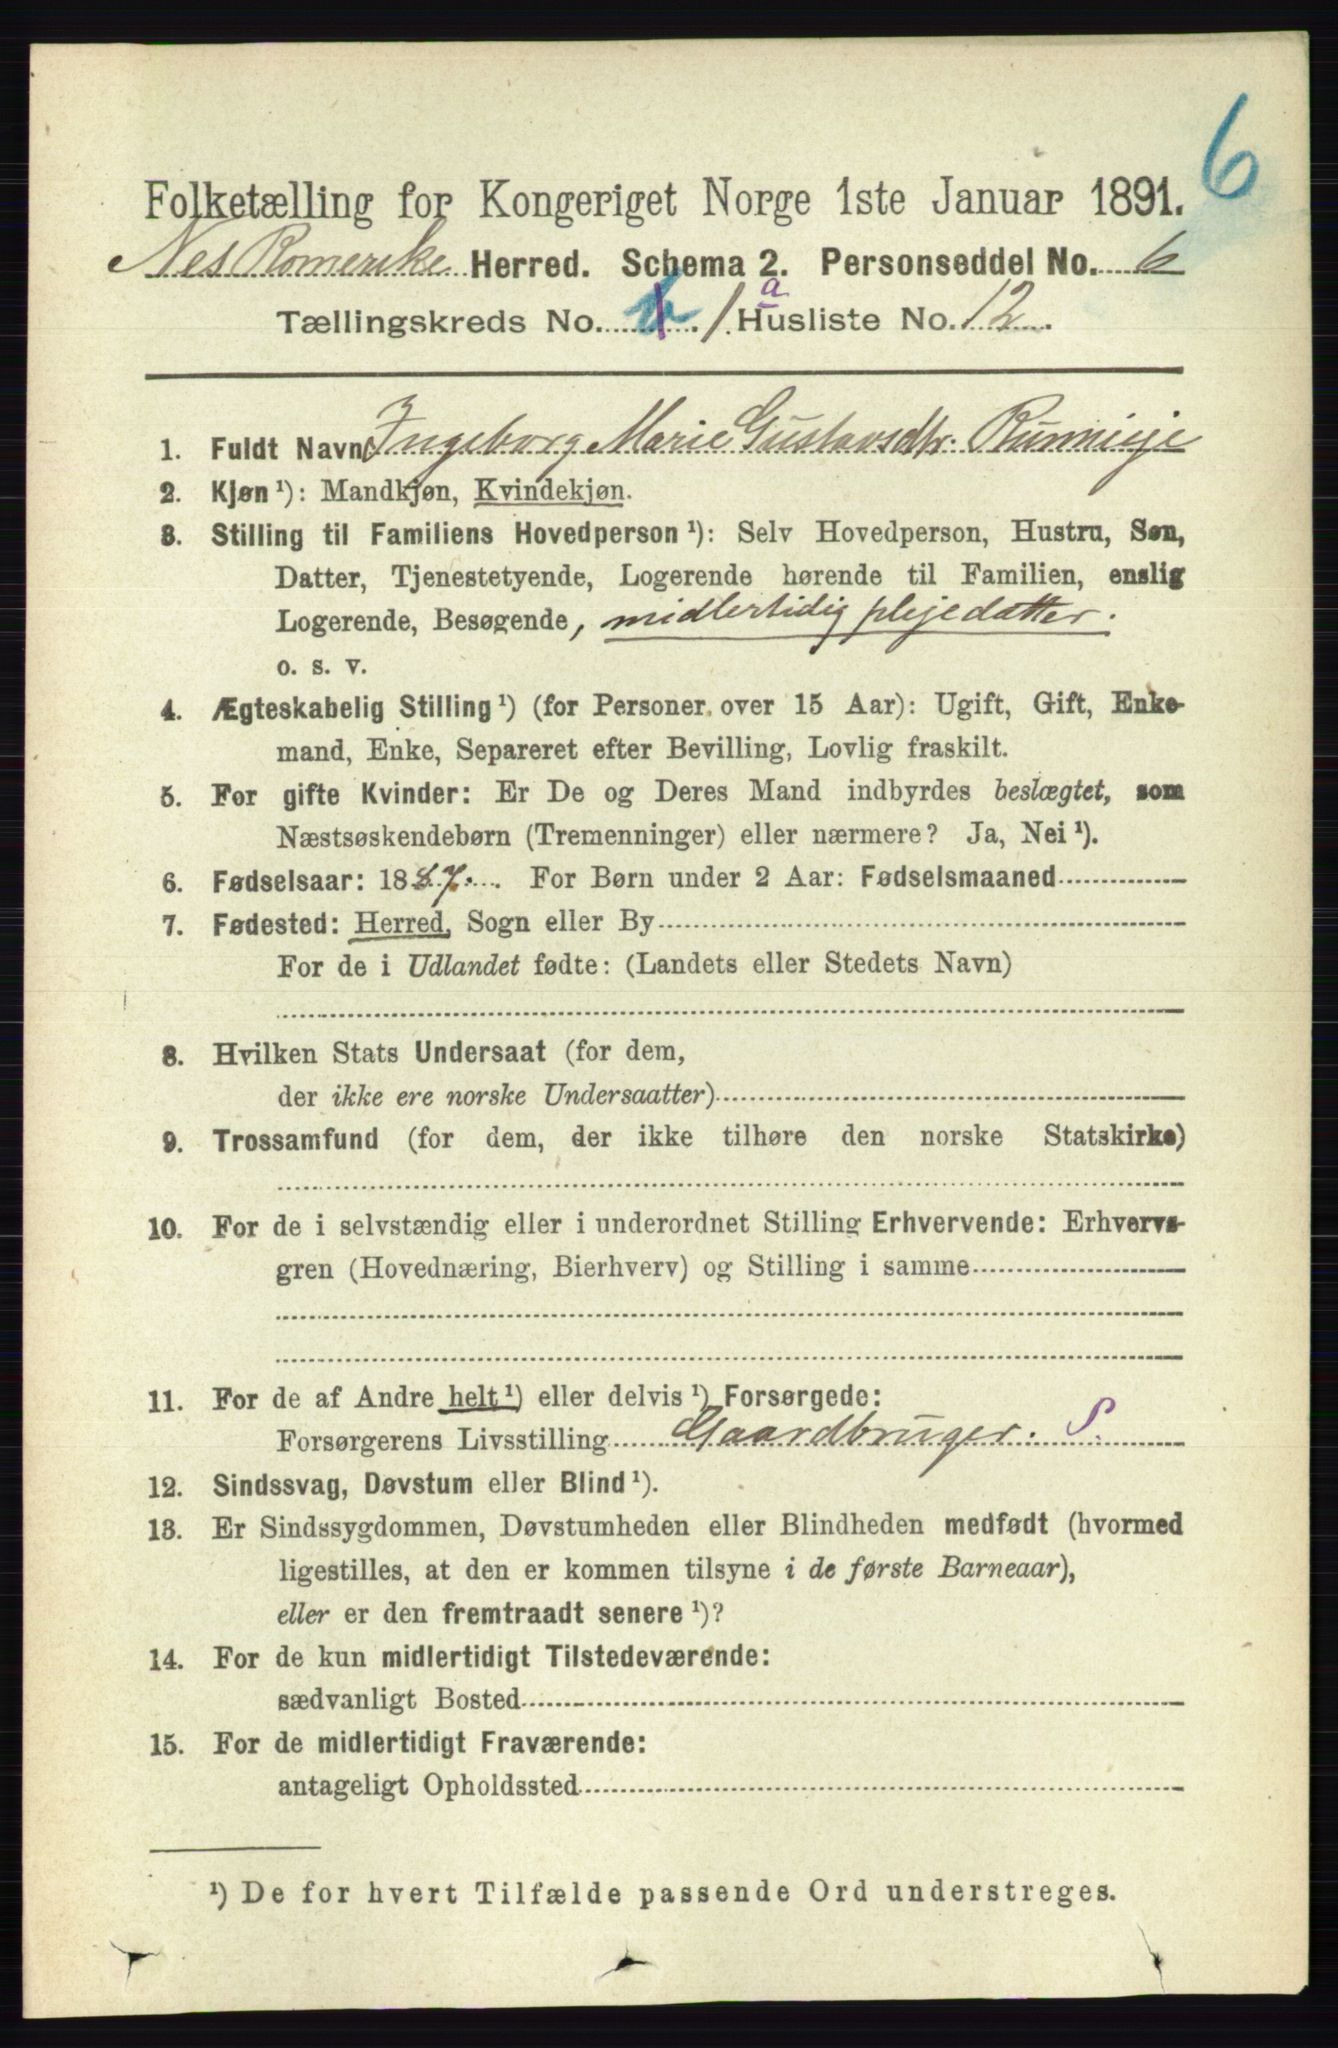 6
Folketælling for Kongeriget Norge 1ste Januar 1891.
Nes Romerike Herred. Schema 2. Personseddel No. 6
a
Tællingskreds No. 1. Husliste No. 12.
1. Fuldt Navn Ingeborg Marie Gustavsdtr.
2. Kjøn ¹): Mandkjøn, Kvindekjøn.
3. Stilling til Familiens Hovedperson ¹): Selv Hovedperson, Hustru, Søn,
Datter, Tjenestetyende, Logerende hørende til Familien, enslig
Logerende, Besøgende, midlertidig plejedatter.
o. s. v.
4. Ægteskabelig Stilling ¹) (for Personer over 15 Aar): Ugift, Gift, Enke-
mand, Enke, Separeret efter Bevilling, Lovlig fraskilt.
5. For gifte Kvinder: Er De og Deres Mand indbyrdes beslægtet, som
Næstsøskendebørn (Tremenninger) eller nærmere? Ja, Nei ¹).
6. Fødselsaar: 1887. For Børn under 2 Aar: Fødselsmaaned
7. Fødested: Herred, Sogn eller By
For de i Udlandet fødte: (Landets eller Stedets Navn)
8. Hvilken Stats Undersaat (for dem,
der ikke ere norske Undersaatter)
9. Trossamfund (for dem, der ikke tilhøre den norske Statskirke)
10. For de i selvstændig eller i underordnet Stilling Erhvervende: Erhvervs-
gren (Hovednæring, Bierhverv) og Stilling i samme
11. For de af Andre helt ¹) eller delvis ¹) Forsørgede:
Forsørgerens Livsstilling Gaardbruger. S.
12. Sindssvag, Døvstum eller Blind ¹).
13. Er Sindssygdommen, Døvstumheden eller Blindheden medfødt (hvormed
ligestilles, at den er kommen tilsyne i de første Barneaar),
eller er den fremtraadt senere ¹)?
14. For de kun midlertidigt Tilstedeværende:
sædvanligt Bosted
15. For de midlertidigt Fraværende:
antageligt Opholdssted
¹) De for hvert Tilfælde passende Ord understreges.